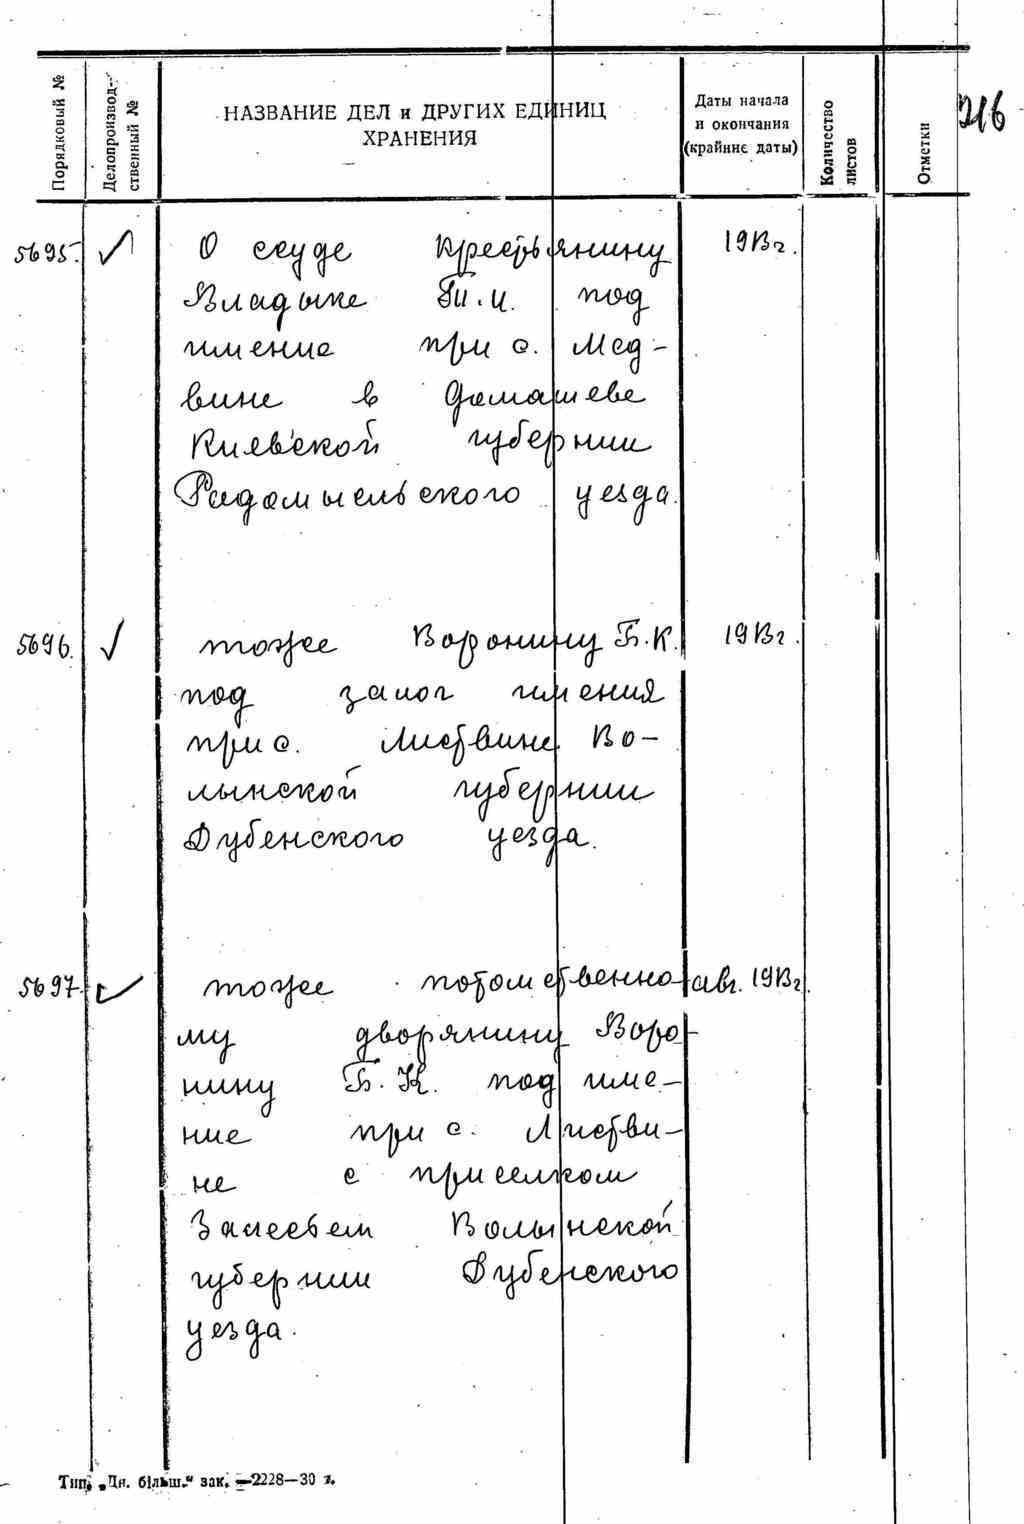 Порядковый №
Делопроизвод-
ственный №
НАЗВАНИЕ ДЕЛ и ДРУГИХ ЕДИНИЦ
ХРАНЕНИЯ
Даты начала
и окончания
(крайние даты)
Количество
листов
Отметки
216
5695. О ссуде крестьянину 1913г.
Владыке П.И. под
имение при с. Мед-
вине в Домашеве
Киевской губернии
Радомысльского уезда.
5696. тоже Воронину Б.К. 1913г.
под залог имения
при с. Листвине Во-
лынской губернии
Дубенского уезда.
5697. тоже потомственно- авг. 1913г.
му дворянину Воро-
нину Б.К. под име-
ние при с. Листви-
не с приселком
Залесьем Волынской
губернии Дубенского
уезда.
Тип. „Дн. більш." зак. —2228—30 г.